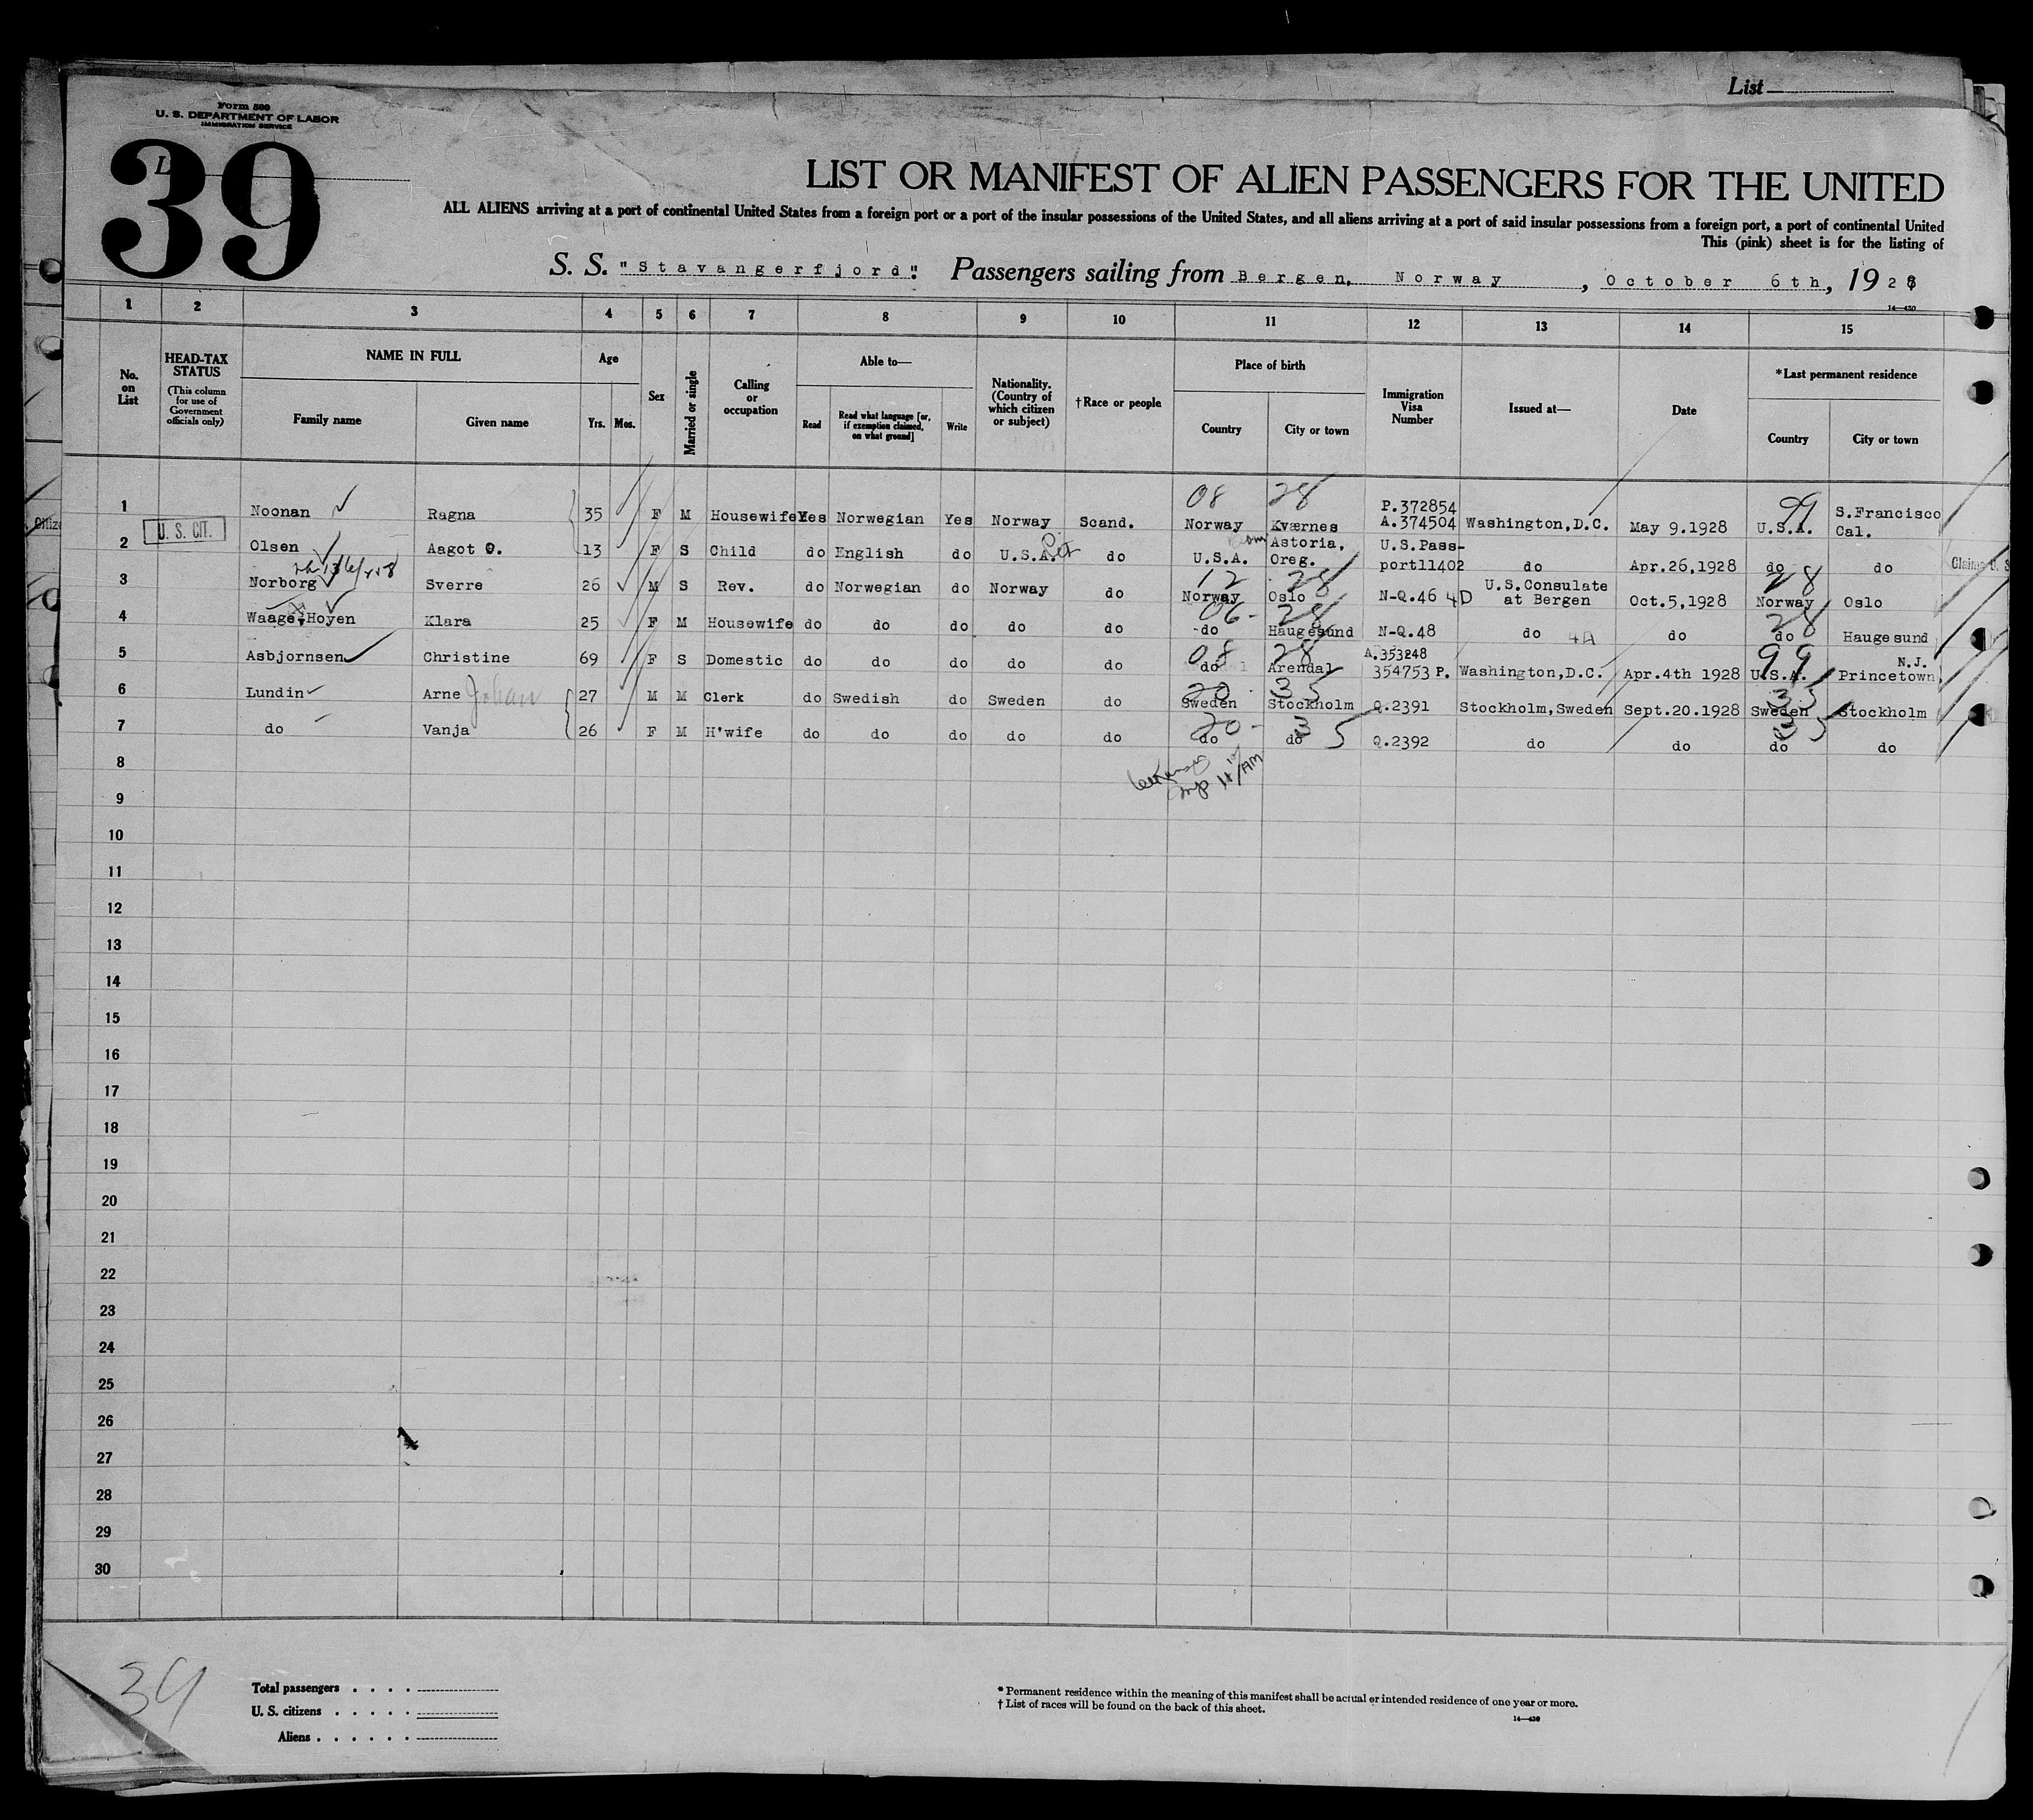 List
Form 500
U. S. DEPARTMENT OF LABOR
IMMIGRATION SERVICE
39
LIST OR MANIFEST OF ALIEN PASSENGERS FOR THE UNITED
ALL ALIENS arriving at a port of continental United States from a foreign port or a port of the insular possessions of the United States, and all aliens arriving at a port of said insular possessions from a foreign port, a port of continental United
This (pink) sheet is for the listing of
S. S. "Stavangerfjord". Passengers sailing from Bergen, Norway, October 6th, 1928
14—430
1 2 3 4 5 6 7 8 9 10 11 12 13 14 15
No. on List
HEAD-TAX STATUS
(This column for use of Government officials only)
NAME IN FULL
Family name Given name
Age
Yrs. Mos.
Sex
Married or single
Calling or occupation
Able to—
Read Read what language [or, if exemption claimed, on what ground] Write
Nationality. (Country of which citizen or subject)
†Race or people
Place of birth
Country City or town
Immigration Visa Number
Issued at—
Date
*Last permanent residence
Country City or town
08 28 99
1 Noonan Ragna 35 F M Housewife Yes Norwegian Yes Norway Scand. Norway Kværnes P.372854 A.374504 Washington,D.C. May 9.1928 U.S.A. S.Francisco Cal.
U. S. CIT.
2 Olsen Aagot O. 13 F S Child do English do U.S.A. do U.S.A. Astoria, Oreg. U.S.Pass- port11402 do Apr.26,1928 do do
12 28 28
3 Norborg Sverre 26 M S Rev. do Norwegian do Norway do Norway Oslo N-Q.46 4D U.S.Consulate at Bergen Oct.5,1928 Norway Oslo
06- 28 28
4 Waage-Hoyen Klara 25 F M Housewife do do do do do do Haugesund N-Q.48 do 4A do do Haugesund
08 28 99
5 Asbjornsen Christine 69 F S Domestic do do do do do do Arendal A.353248 354753 P. Washington,D.C. Apr.4th 1928 U.S.A. N.J. Princetown,
20 35 35
6 Lundin Arne Johan 27 M M Clerk do Swedish do Sweden do Sweden Stockholm Q.2391 Stockholm,Sweden Sept.20.1928 Sweden Stockholm
20- 35 35
7 do Vanja 26 F M H'wife do do do do do do do Q.2392 do do do do
8
9
10
11
12
13
14
15
16
17
18
19
20
21
22
23
24
25
26
27
28
29
30
39
Total passengers . . . .
U. S. citizens . . . . .
Aliens . . . . . .
* Permanent residence within the meaning of this manifest shall be actual or intended residence of one year or more.
† List of races will be found on the back of this sheet.
14—430